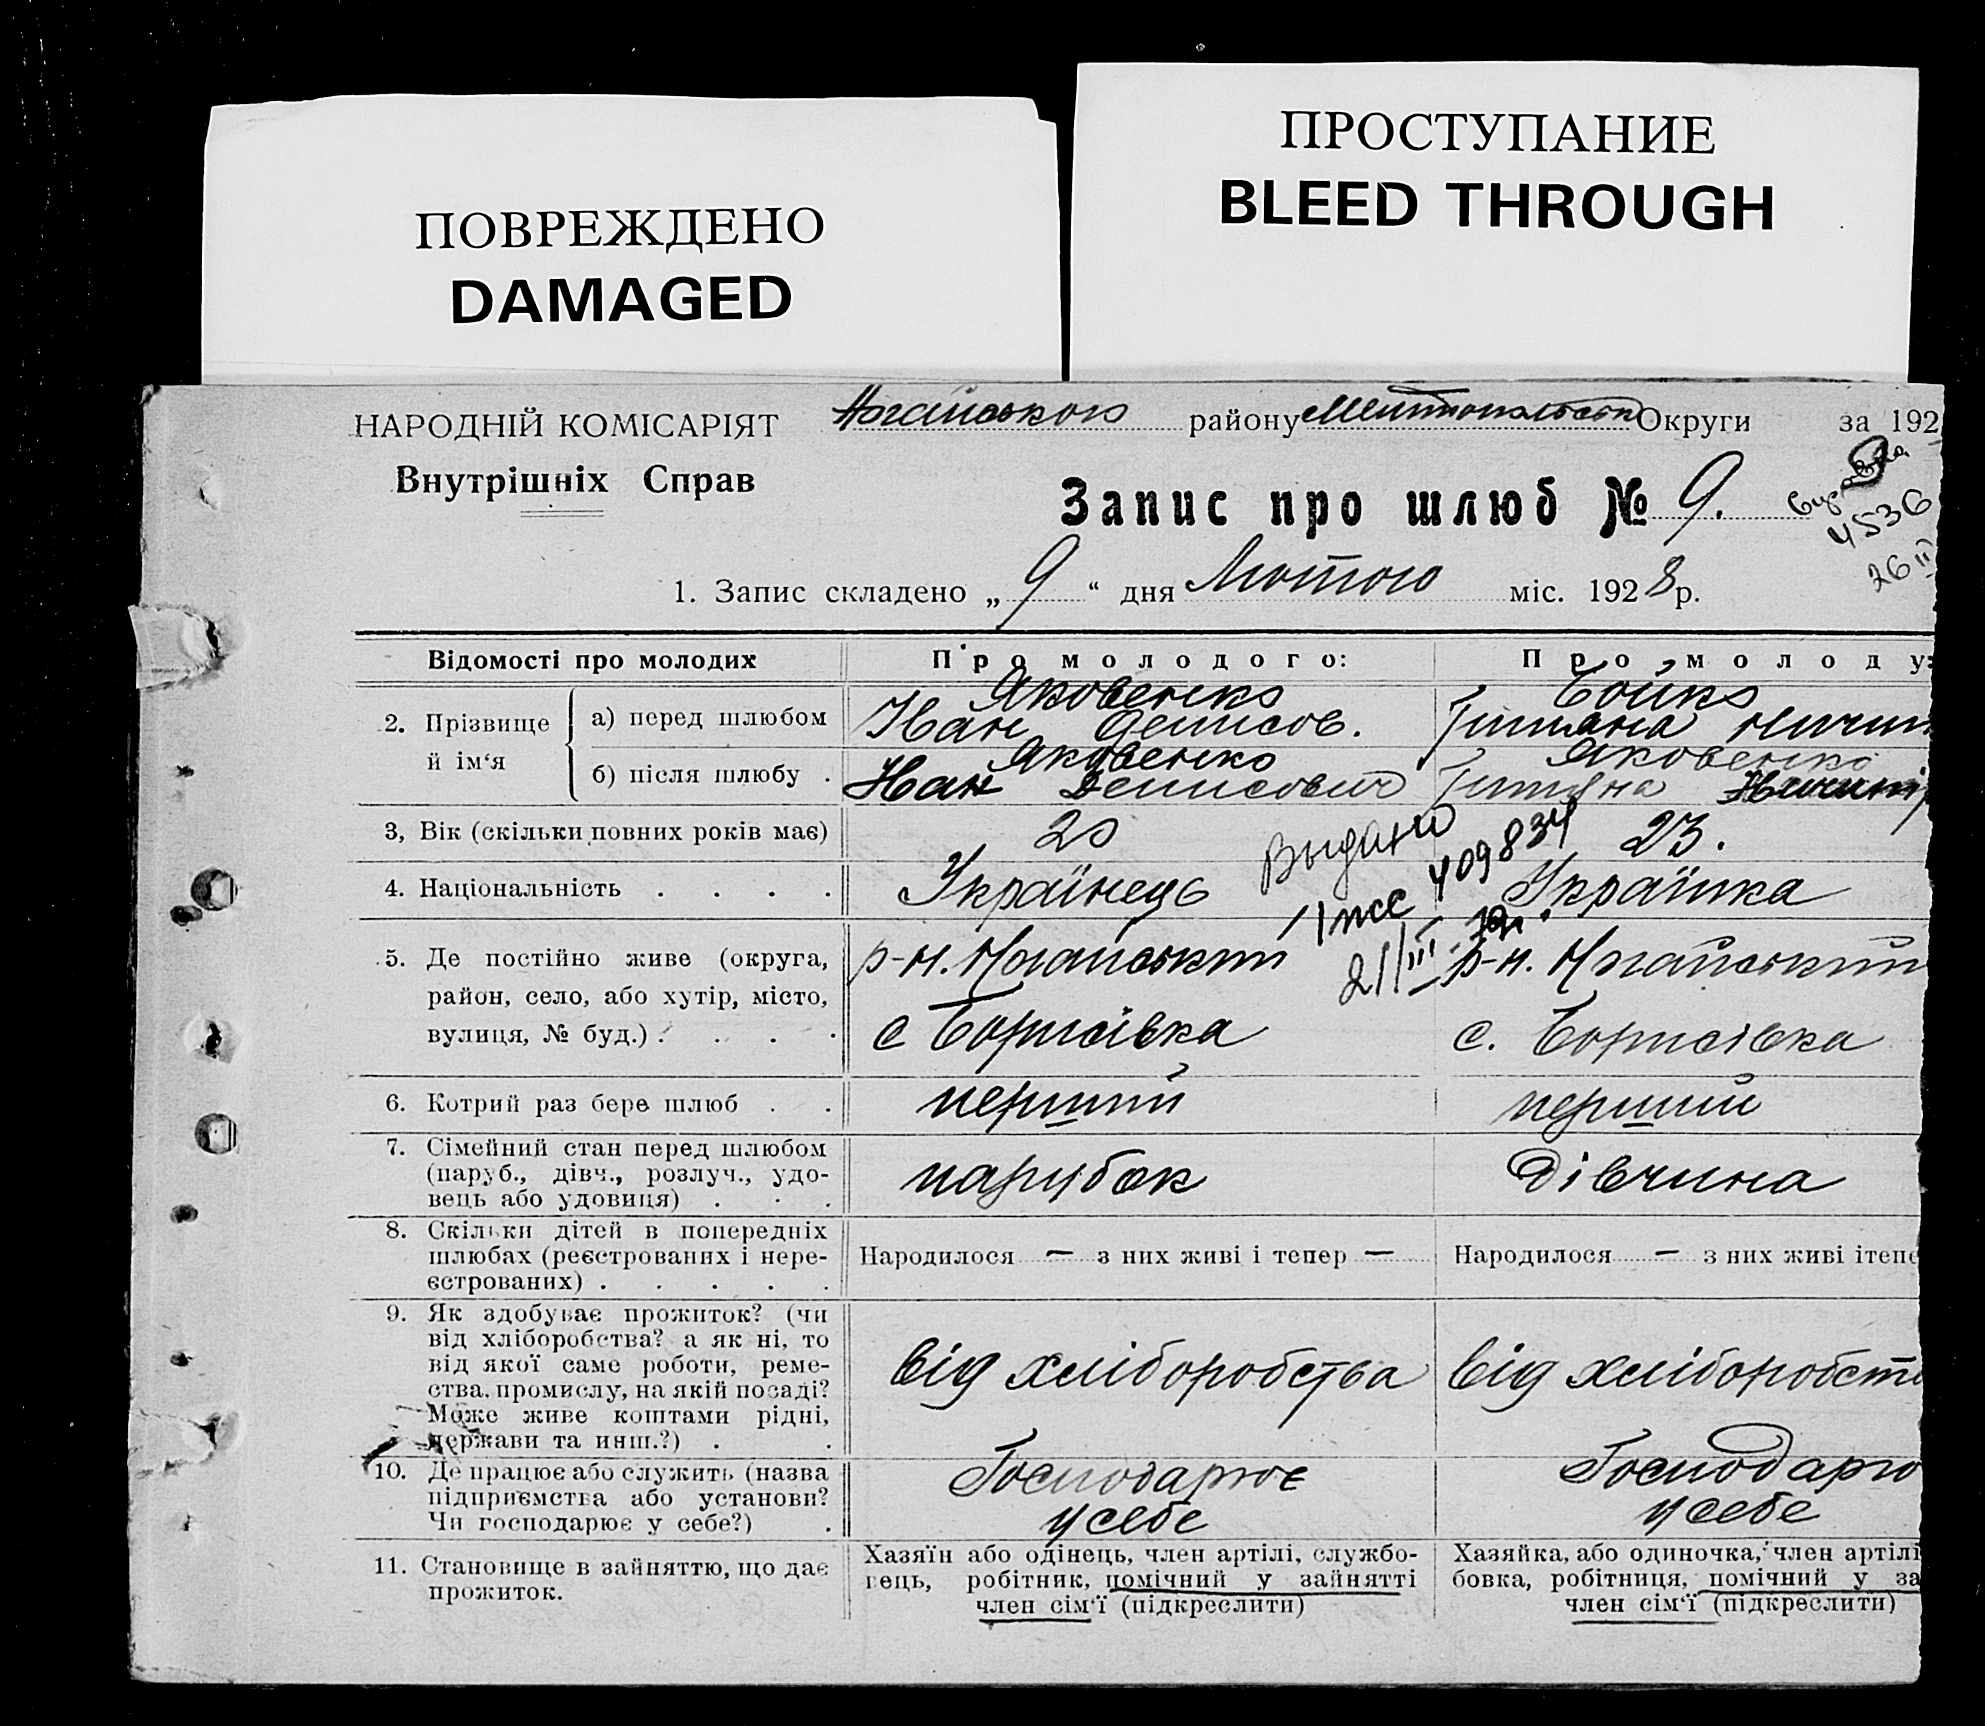 ПОВРЕЖДЕНО
DAMAGED
ПРОСТУПАНИЕ
BLEED THROUGH
НАРОДНІЙ КОМІСАРІЯТ
Внутрішніх Справ
Ногайського району Мелітопольськ Округи за 192
Запис про шлюб № 9.
4536
26 II
1. Запис складено „ 9 “ дня Лютого міс. 1928 р.
Відомості про молодих
Про молодого:
Про молоду:
2. Прізвище й ім‘я
а) перед шлюбом
Яковенко
Іван Денисов.
Бойко
Титяна Ничип
б) після шлюбу .
Яковенко
Іван Денисович
Яковенко
Титяна Ничипір
3, Вік (скільки повних років має)
20
23.
Выдано
409834
21/III
4. Національність . . . .
Українець
Українка
5. Де постійно живе (округа,
район, село, або хутір, місто,
вулиця, № буд.) . . . .
р-н. Ногайський
с Борисівка
р-н. Ногайський
с. Борисівка
6. Котрий раз бере шлюб . .
перший
перший
7. Сімейний стан перед шлюбом
(паруб., дівч., розлуч., удо-
вець або удовиця) . . .
парубок
дівчина
8. Скільки дітей в попередніх
шлюбах (реєстрованих і нере-
єстрованих) . . . . .
Народилося — з них живі і тепер —
Народилося — з них живі ітепе
9. Як здобуває прожиток? (чи
від хліборобства? а як ні, то
від якої саме роботи, реме-
ства, промислу, на якій посаді?
Може живе коштами рідні,
держави та инш.?) . .
від хліборобства
від хліборобств
10. Де працює або служить (назва
підприємства або установи?
Чи господарює у себе?) .
Господарює
у себе
Господарю
у себе
11. Становище в зайняттю, що дає
прожиток.
Хазяїн або одінець, член артілі, службо-
вець, робітник, помічний у зайнятті
член сім‘ї (підкреслити)
Хазяйка, або одиночка, член артілі
бовка, робітниця, помічний у за
член сім‘ї (підкреслити)